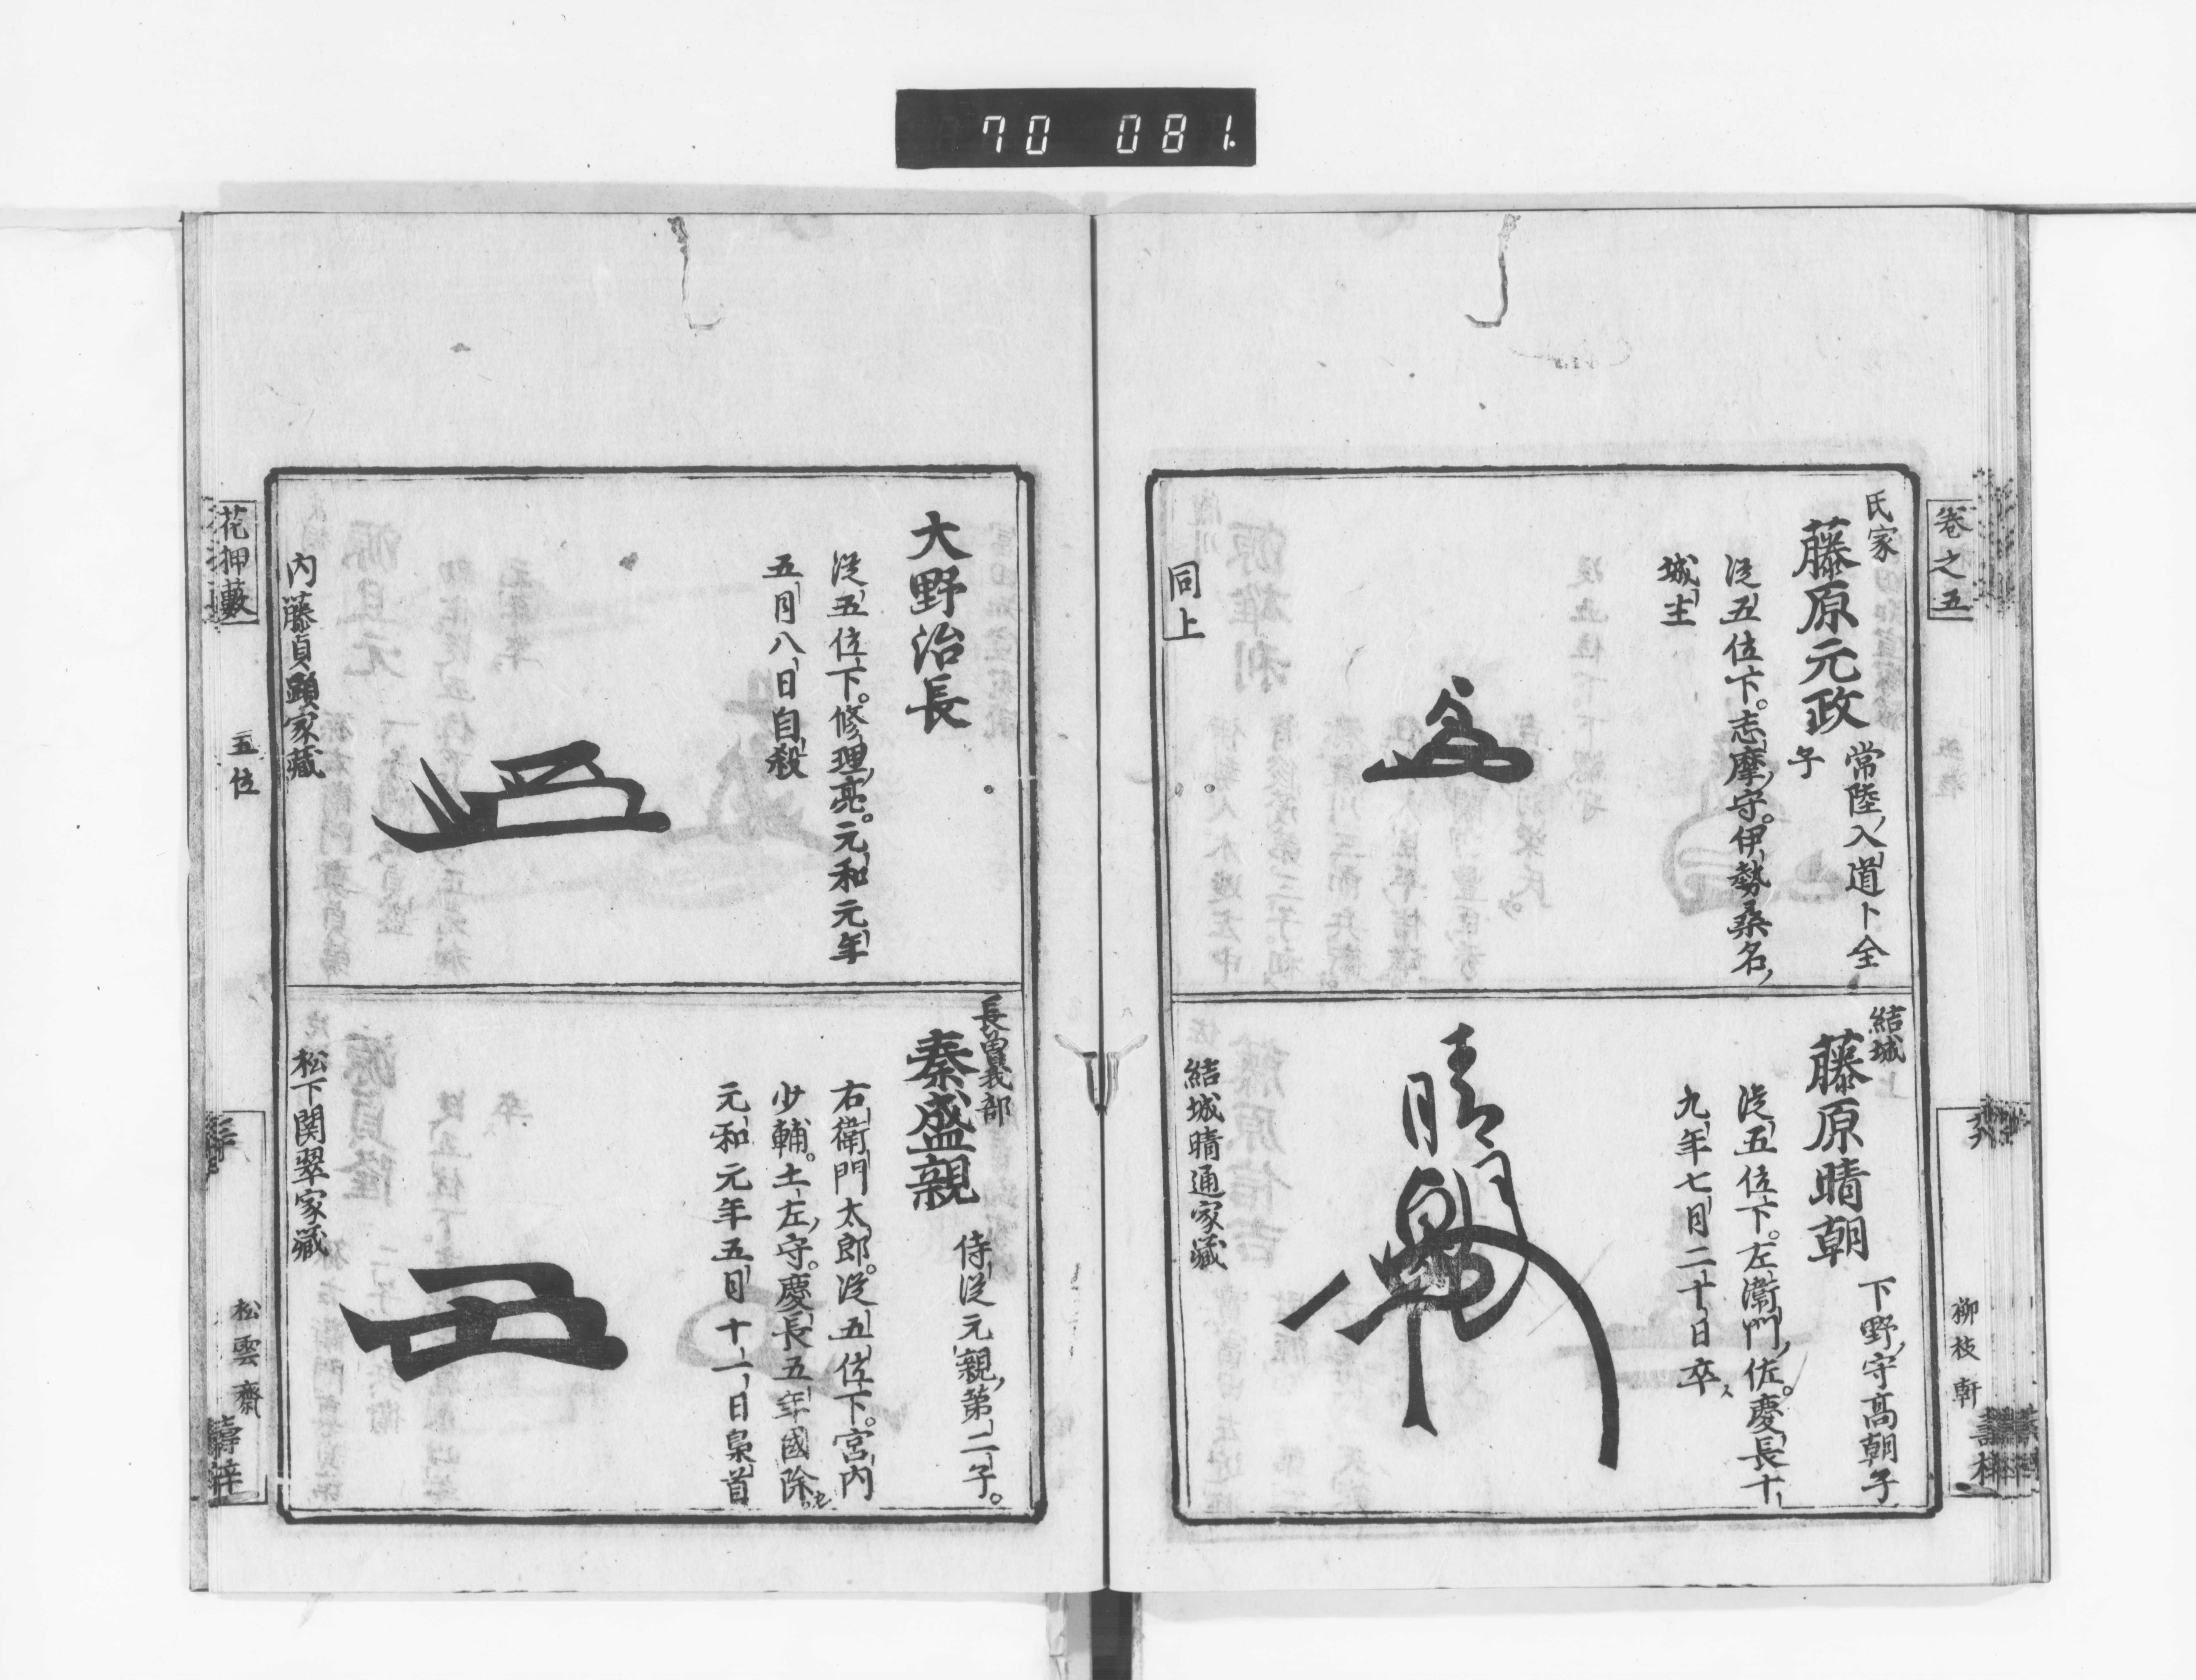 70 081.
卷之五
柳枝軒
氏家
藤原元政
常陸入道卜全
子
従五位下。志摩守。伊勢桑名
城主
同上
結城
藤原晴朝
下野守高朝子
従五位下。左衛門佐。慶長十
九年七月二十日卒
結城晴通家藏
大野治長
従五位下。修理亮。元和元年
五月八日自殺
内藤貞顕家藏
長曽我部
秦盛親
侍従元親第二子。
右衛門太郎。従五位下。宮内
少輔。土左守。慶長五年國除。
元和元年五月十一日梟首
松下関翠家藏
花押藪
五位
松雲齋